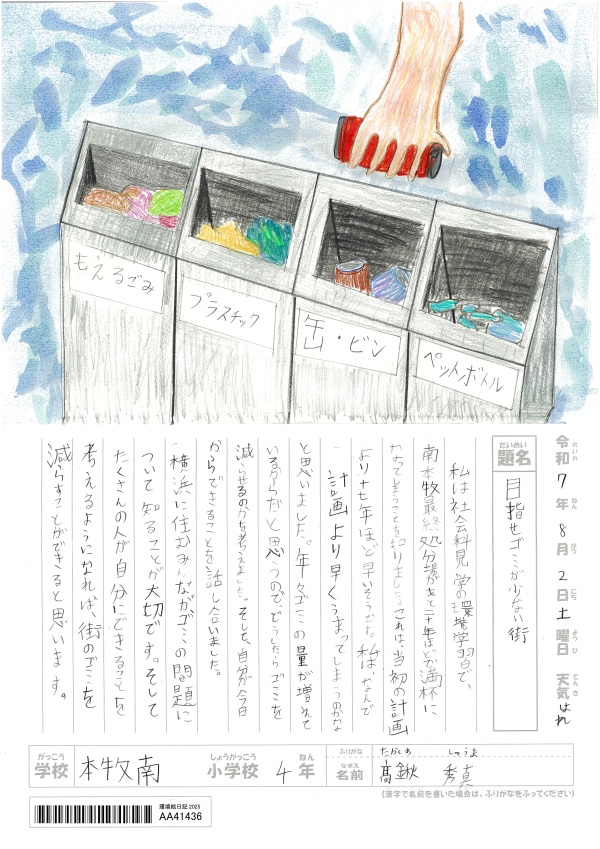 もえるごみ
プラスチック
缶・ビン
ペットボトル
令和7年8月2日土曜日 天気 はれ
れいわ ねん がつ にち ようび てんき
だいめい
題名
目指せゴミが少ない街
私は社会科見学の環境学習で、
南本牧最終処分場があと二十年ほどで満杯に
なってしまうことを知りました。これは、当初の計画
より十七年ほど早いそうです。私は、なんで
計画より早くうまってしまうのかな
と思いました。年々ゴミの量が増えて
いるからだと思うので、どうしたらゴミを
減らせるのかを考えました。そして、自分が今日
からできることを話し合いました。
横浜に住むみんなが、ゴミの問題に
ついて知ることが大切です。そして
たくさんの人が自分にできることを
考えるようになれば、街のゴミを
減らすことができると思います。
がっこう しょうがっこう ねん ふりがな
学校 本牧南 小学校 4年
なまえ
名前 髙鍬 秀真
(漢字で名前を書いた場合は、ふりがなをふってください)
環境絵日記 2025
AA41436